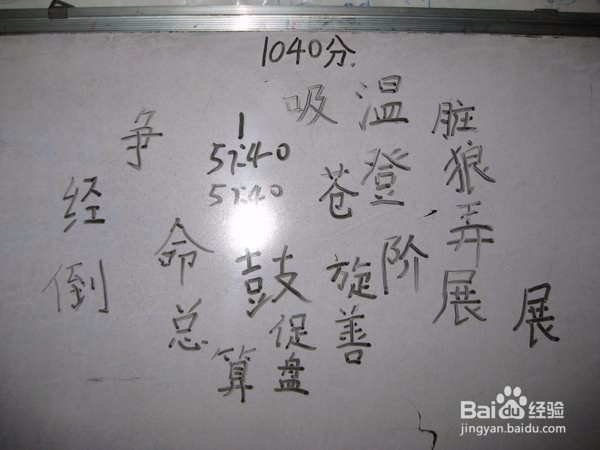 1040分
吸 温 脏
争 1 狼
57:40 苍 登
57:40
经 弄
命 鼓 旋 阶 展
倒 总 促 善 展
算 盘
Baidu经验
jingyan.baidu.com